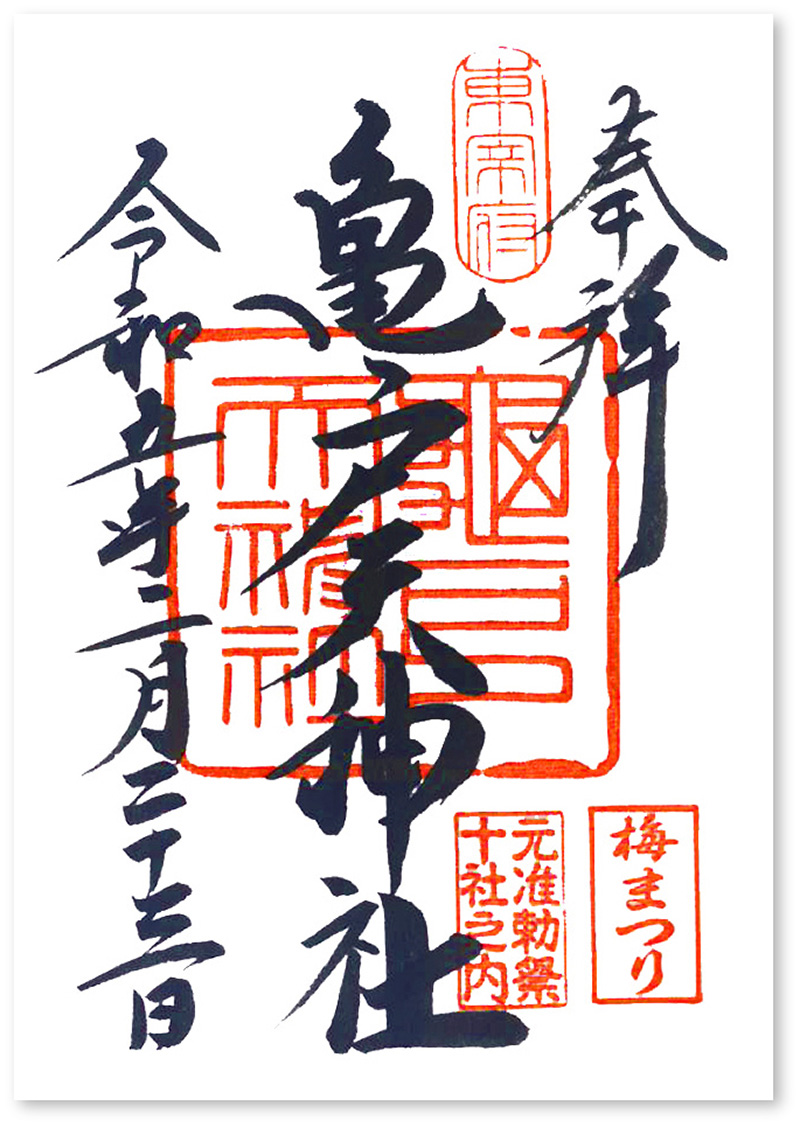 奉拝
東宰府
梅まつり
亀戸天神社
龜戸
天神社
元准勅祭
十社之内
令和五年二月二十三日